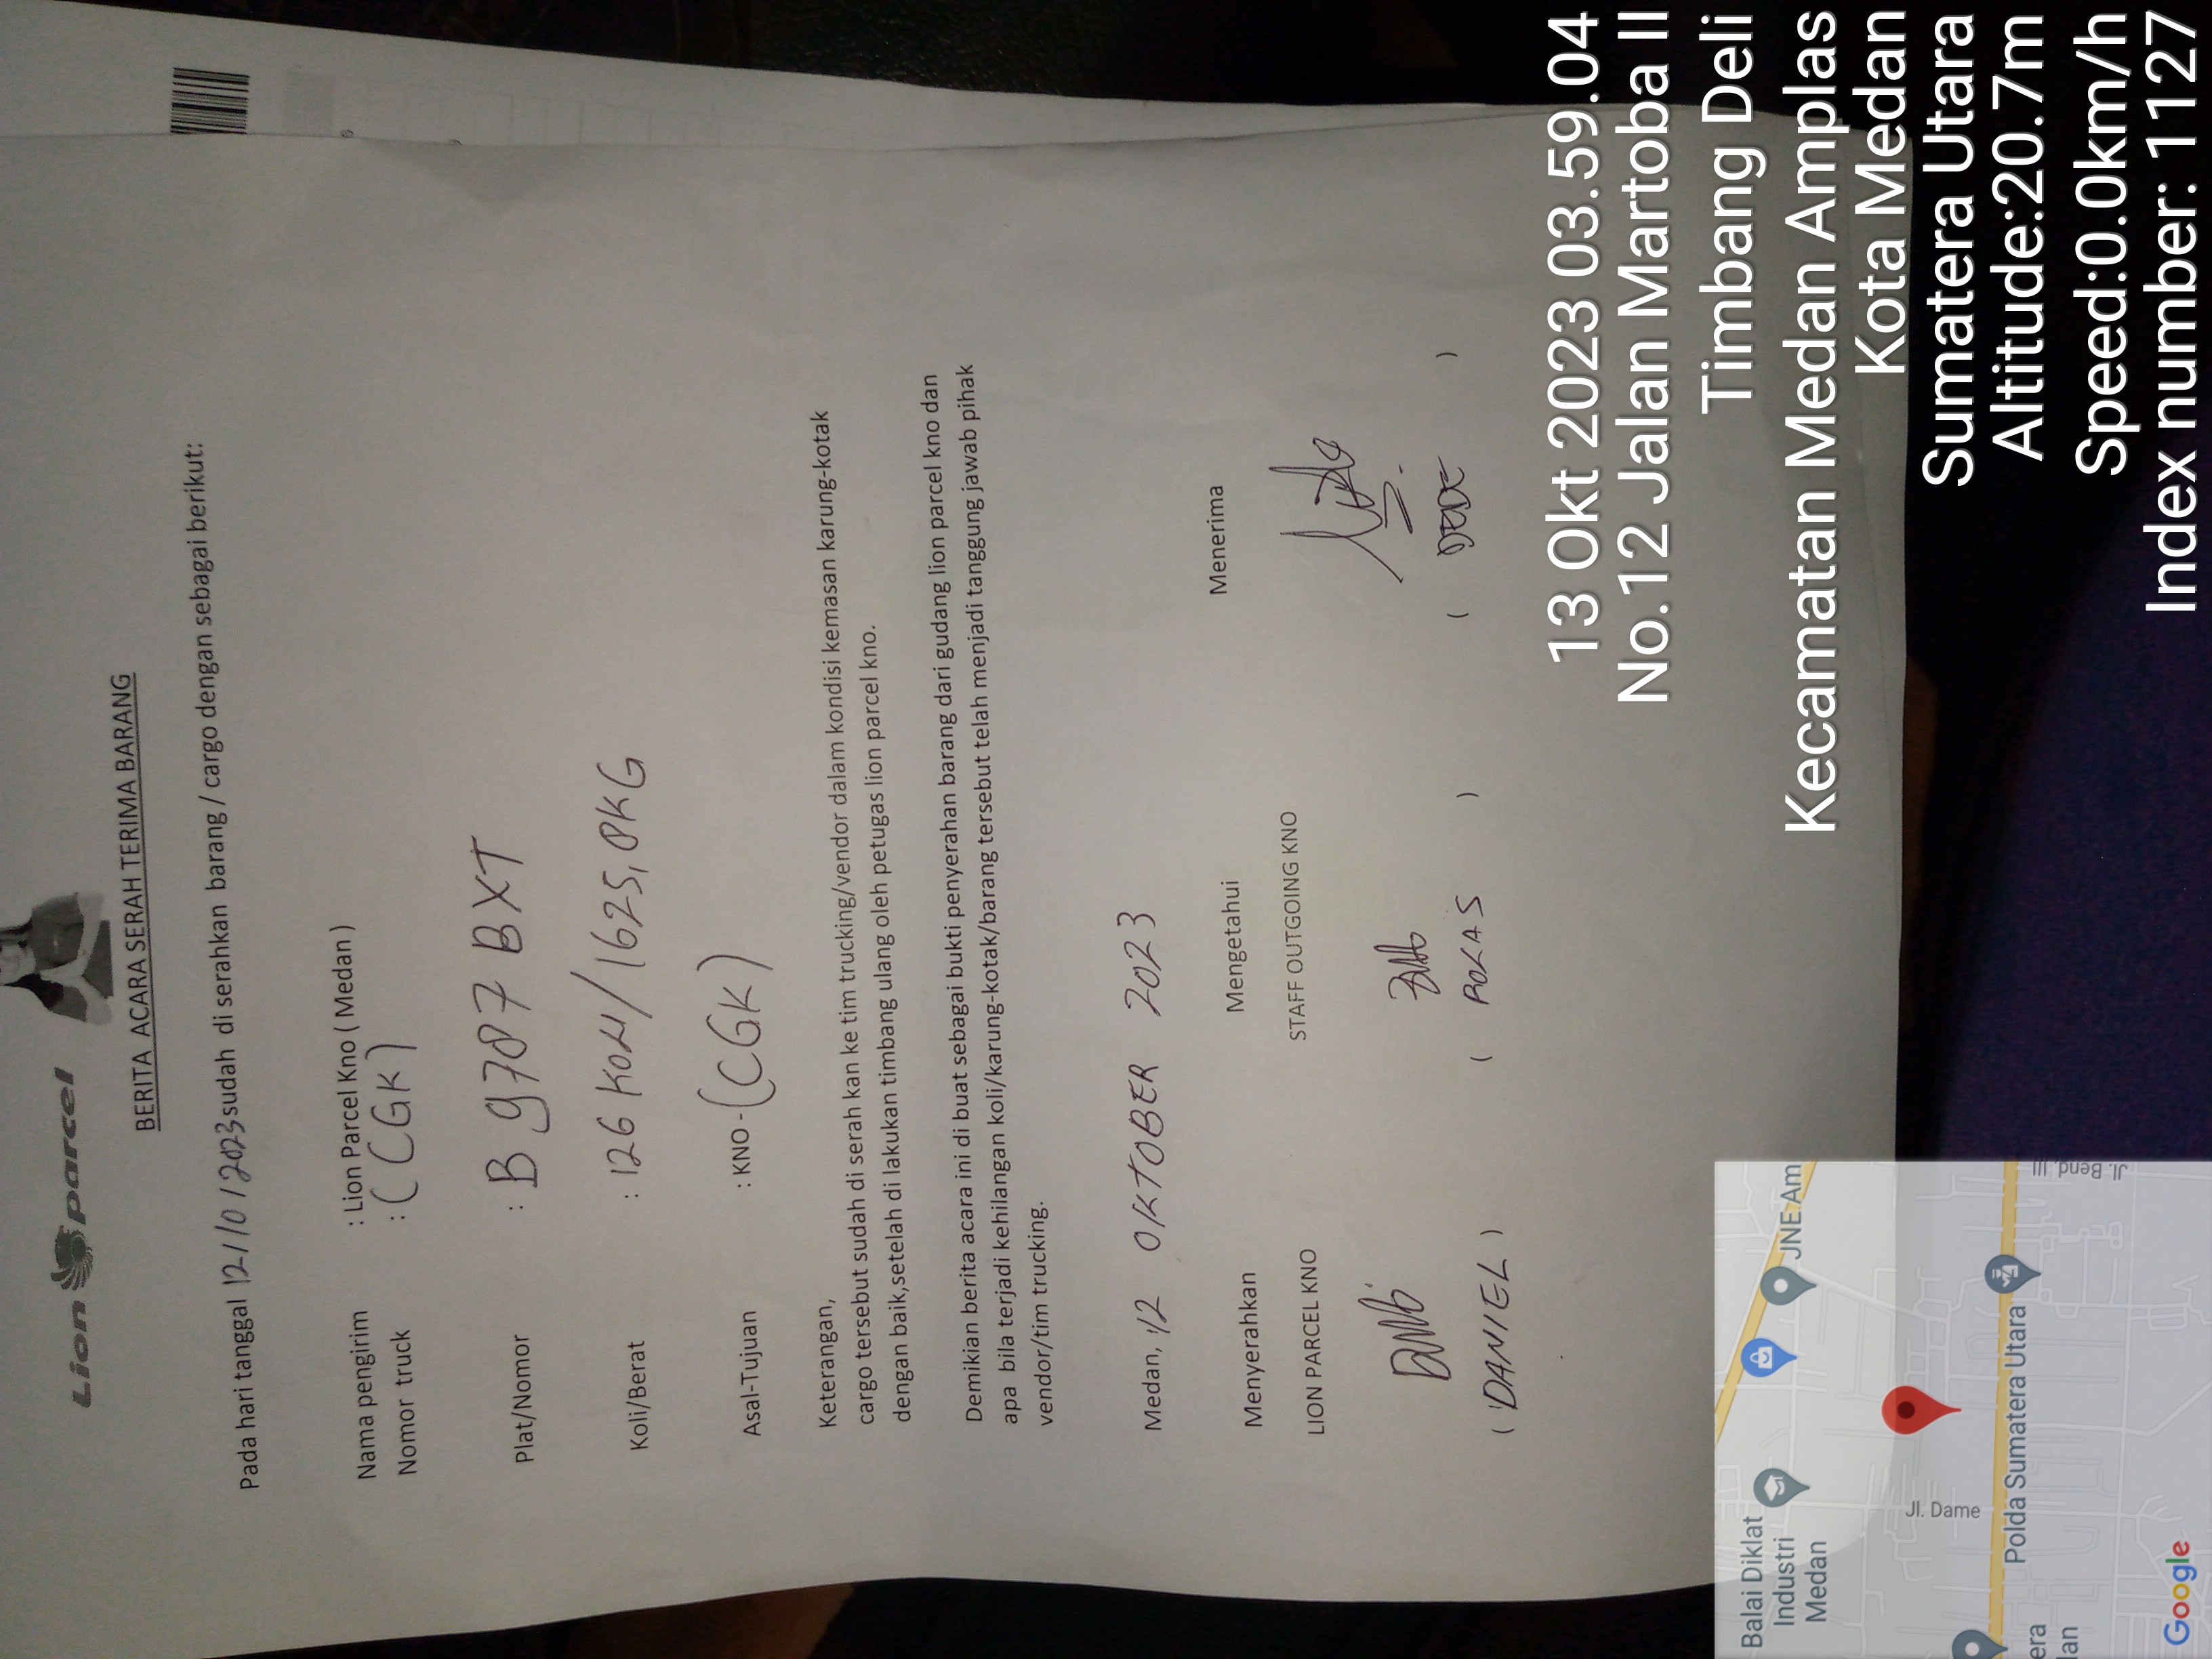 Lion parcel
BERITA ACARA SERAH TERIMA BARANG
Pada hari tanggal 12/10/2023 sudah di serahkan barang / cargo dengan sebagai berikut:
Nama pengirim : Lion Parcel Kno ( Medan )
Nomor truck : (CGK)
Plat/Nomor : B 9787 BXT
Koli/Berat : 126 KOLI/1625,8KG
Asal-Tujuan : KNO - (CGK)
Keterangan,
cargo tersebut sudah di serah kan ke tim trucking/vendor dalam kondisi kemasan karung-kotak
dengan baik,setelah di lakukan timbang ulang oleh petugas lion parcel kno.
Demikian berita acara ini di buat sebagai bukti penyerahan barang dari gudang lion parcel kno dan
apa bila terjadi kehilangan koli/karung-kotak/barang tersebut telah menjadi tanggung jawab pihak
vendor/tim trucking.
Medan, 12 OKTOBER 2023
Menyerahkan Mengetahui Menerima
LION PARCEL KNO STAFF OUTGOING KNO
(DANIEL) ( ROLAS ) ( DEDE )
13 Okt 2023 03.59.04
No.12 Jalan Martoba II
Timbang Deli
Kecamatan Medan Amplas
Kota Medan
Sumatera Utara
Altitude:20.7m
Speed:0.0km/h
Index number: 1127
Balai Diklat
Industri
Medan
JNE Am
Jl. Dame
Polda Sumatera Utara
era
lan
Jl. Bend. III
Google